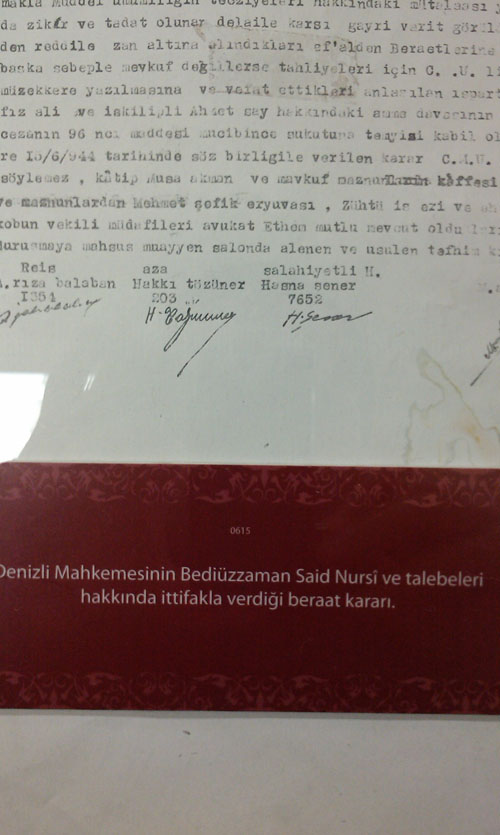 makla müddei umumiliğin tecziyeleri hakkındaki mütalaası
da zikir ve tadat olunar delaile karsı gayri varit görül
den reddile zan altına alındıkları ef'alden Beraetlerine
baska sebeple mevkuf değillerse tahliyeleri için C. .U. li
müzekkere yazılmasına ve vefat ettikleri anlasılan ispart
fız ali ve iskilipli Ahmet say hakkındaki amme davasının
cezanın 96 ncı maddesi mucibince sukutuna temyisi kabil ol
re 15/6/944 tarihinde söz birligile verilen karar C.M.U.
söylemez , kâtip Musa akman ve mavkuf maznunların kâffesi
ve maznunlardan Mehmet şefik exyuvası , Zühtü is eri ve ah
kobun vekili müdafileri avukat Ethem mutlu mevcut oldu
durusmaya mahsus muayyen salonda alenen ve usulen tefhim k
Reis aza salahiyetli H.
rıza balaban Hakkı tözüner Hasna sener
1351 203 ,, 7652
H. Şener
0615
Denizli Mahkemesinin Bediüzzaman Said Nursî ve talebeleri
hakkında ittifakla verdiği beraat kararı.